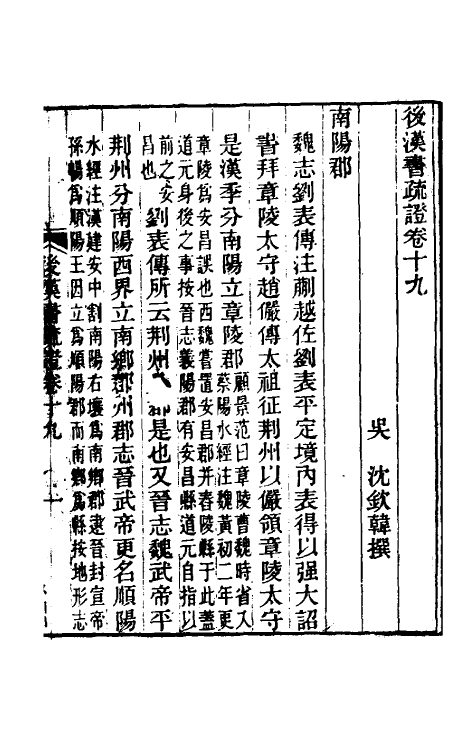 後漢書疏證卷十九
吳 沈欽韓撰
南陽郡
魏志劉表傳注蒯越佐劉表平定境內表得以强大詔
書拜章陵太守趙儼傳太祖征荆州以儼領章陵太守
是漢季分南陽立章陵郡顧景范曰章陵曹魏時省入
蔡陽水經注魏黃初二年更
章陵爲安昌誤也西魏嘗置安昌郡并舂陵縣于此蓋
道元身後之事按晉志義陽郡有安昌縣道元自指以
前之安
昌也劉表傳所云荆州八郡是也又晉志魏武帝平
荆州分南陽西界立南鄉郡州郡志晉武帝更名順陽
水經注漢建安中割南陽右壤爲南鄉郡逮晉封宣帝
孫暢爲順陽王因立爲順陽郡而南鄉爲縣按地形志
後漢書疏證卷十九 一